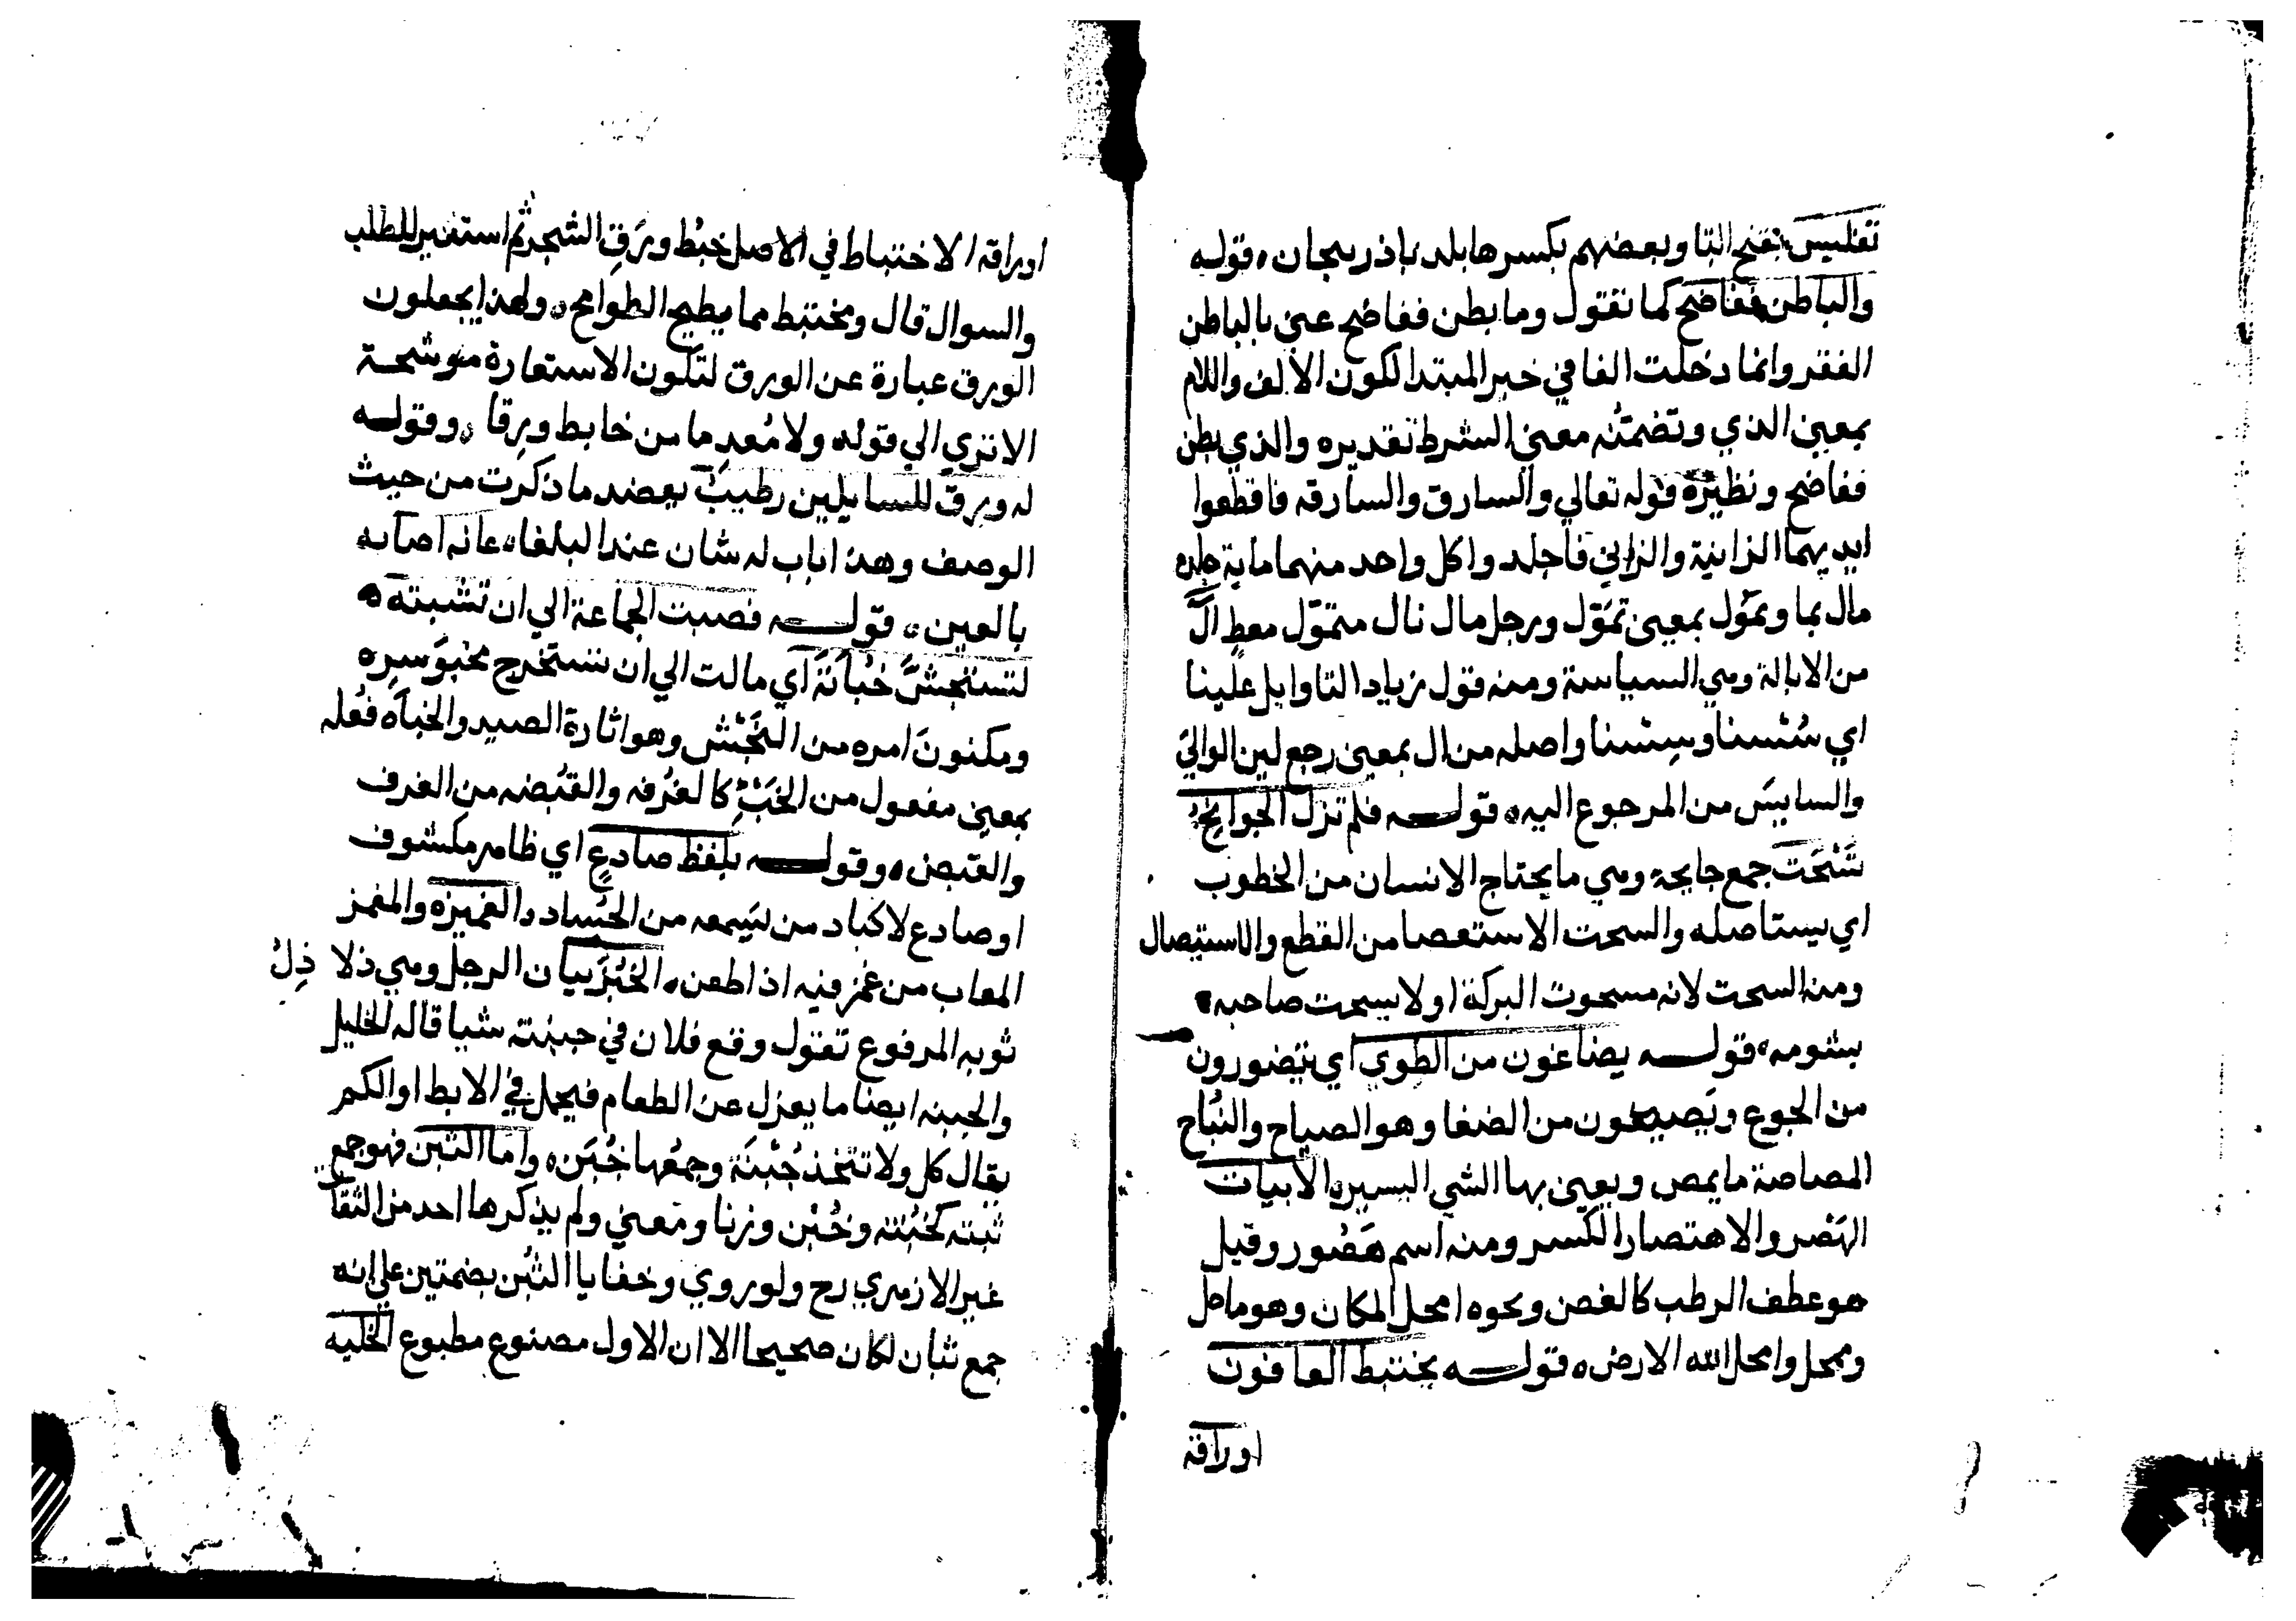 تفليس بفتح التا وبعضهم بكسرها بلد باذربيجان، قوله
والباطن ففاضح كما تقول وما بطن ففاضح عني بالباطن
الفقر وانما دخلت الفا في خبر المبتدا لكون الالف واللام
بمعني الذي وتضمنه معني الشرط تقديره والذي بطن
ففاضح ونظيره قوله تعالي والسارق والسارقه فاقطعوا
ايديهما الزانية والزاني فاجلدوا كل واحد منهما ماية جلده
مال بما وتمول بمعني تمَوّل ورجل مال نال متموّل معطٍ اَلَّ
من الايالة وهي السياسة ومنه قول زياد التاوايل علينا
اي سُسْنا وسِسْنا واصله من ال بمعني رجع لين الوالي
والسايس من المرجوع اليه، قولـــه فلم تزل الجوايحُ
تَسْحَت جمع جايحة وهي ما يحتاج الانسان من الخطوب
اي يستاصله والسحت الاستعصا من القطع والاستيصال
ومنه السحت لانه مسحوت البركة او لا يسحت صاحبه،
بشومه، قولـــه يضاغون من الطوي اي يتضورون
من الجوع ويَصيحون من الضغا وهو الصياح والنُباح
المصاصة ما يمص ويعني بها الشي اليسير، الابيات
الهَصْر والاهتصار الكسر ومنه اسم هَصُور وقيل
هو عطف الرطب كالغصن ونحوه امحل المكان وهو ماحل
وممحل وامحل الله الارض، قولـــه يختبط العافون
اوراقة
اوراقه الاختباط في الاصل خبْط ورَقِ الشجر ثم استعير للطلب
والسوال قال ومختبط مما يطيح الطوامح، ولهذا يجعلون
الورق عبارة عن الورق لتكون الاستعارة موشحة
الا تري الي قوله ولا مُعدِما من خابط ورِقا، وقولـه
له ورق للسايلين رطيبُ يعضد ما ذكرت من حيث
الوصف وهذا باب له شان عند البلغا، عانه اصابه
بالعين، قولـــه فصبت الجماعة الي ان تشبته
لتستنجشَ خُبأتَهُ اَي مالت الي ان تستخرج مخبوَ سِره
ومكنونَ امره من النَجْش وهو اثارة الصيد والخباَه فُعله
بمعني مفعول من الخَبْءِ كالغُرفه والقُبضه من الغرف
والقبض، وقولـــه بلفظ صادعٍ اي ظاهر مكشوف
او صادع لاكباد من يَسمعه من الحُساد والغميزه والمغمز
المعاب من غمز فيه اذا طعن، الخُبْزَ بيان الرجل وهي ذلا ذِلُ
ثوبه المرفوع تقول وقع فلان في خبنته شيا قاله الخليل
والخبنه ايضا ما يعزل عن الطعام فيجعل في الابط او الكم
يقال كل ولا تتخذ خُبْنَة وجمعُها خُبَن، واما الثبن فهو جمع
ثبنه كخُبْنه وخُبْن وزنا ومَعني ولم يذكرها احد من الثقات
غير الازهري رح ولو روي وخفايا الثُبن بضمتين علي انه
جمع ثبان لكان صحيحا الا ان الاول مصنوع مطبوع الخليه